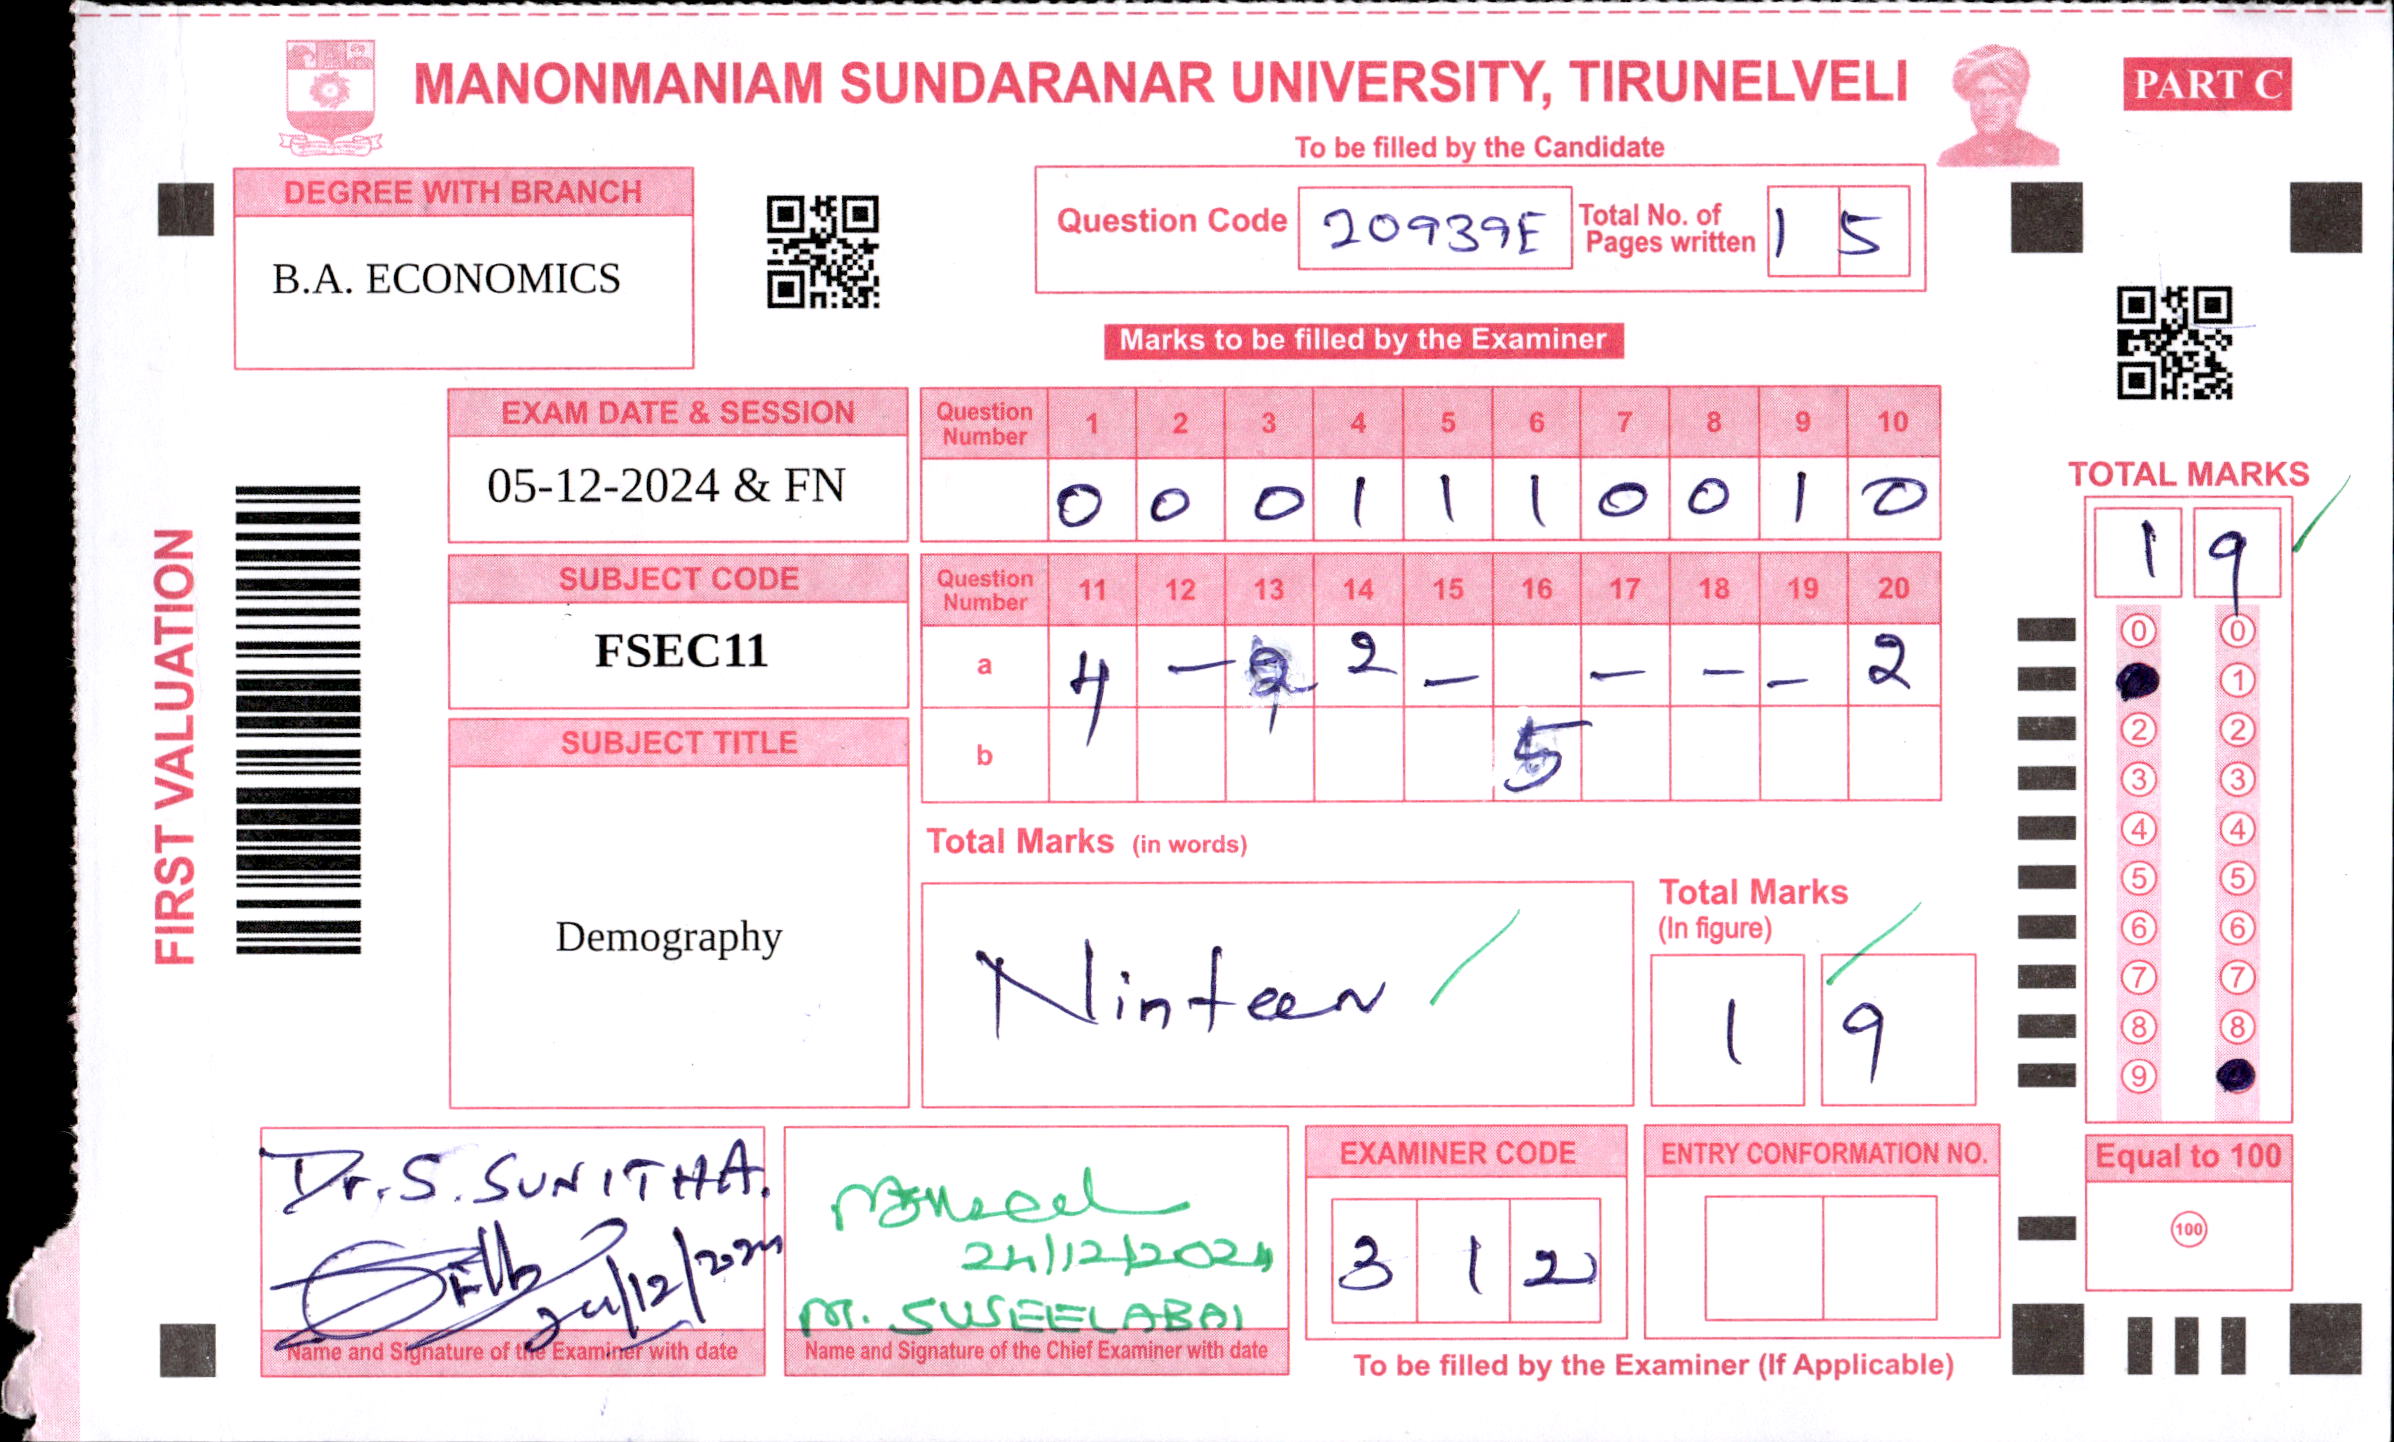 MANONMANIAM SUNDARANAR UNIVERSITY, TIRUNELVELI
PART C
To be filled by the Candidate
DEGREE WITH BRANCH
B.A. ECONOMICS
Question Code 20939E Total No. of Pages written 1 5
Marks to be filled by the Examiner
FIRST VALUATION
EXAM DATE & SESSION
05-12-2024 & FN
SUBJECT CODE
FSEC11
SUBJECT TITLE
Demography
Question Number 1 2 3 4 5 6 7 8 9 10
0 0 0 1 1 1 0 0 1 0
Question Number 11 12 13 14 15 16 17 18 19 20
a 4 - 2 - - - - 2
b 5
Total Marks (in words)
Ninteen
Total Marks
(In figure)
1 9
TOTAL MARKS
1 9
0 0
1
2 2
3 3
4 4
5 5
6 6
7 7
8 8
9
Equal to 100
100
Dr. S. SUNITHA.
24/12/2024
Name and Signature of the Examiner with date
24/12/2024
M. SUSEELABAI
Name and Signature of the Chief Examiner with date
EXAMINER CODE
3 1 2
ENTRY CONFORMATION NO.
To be filled by the Examiner (If Applicable)